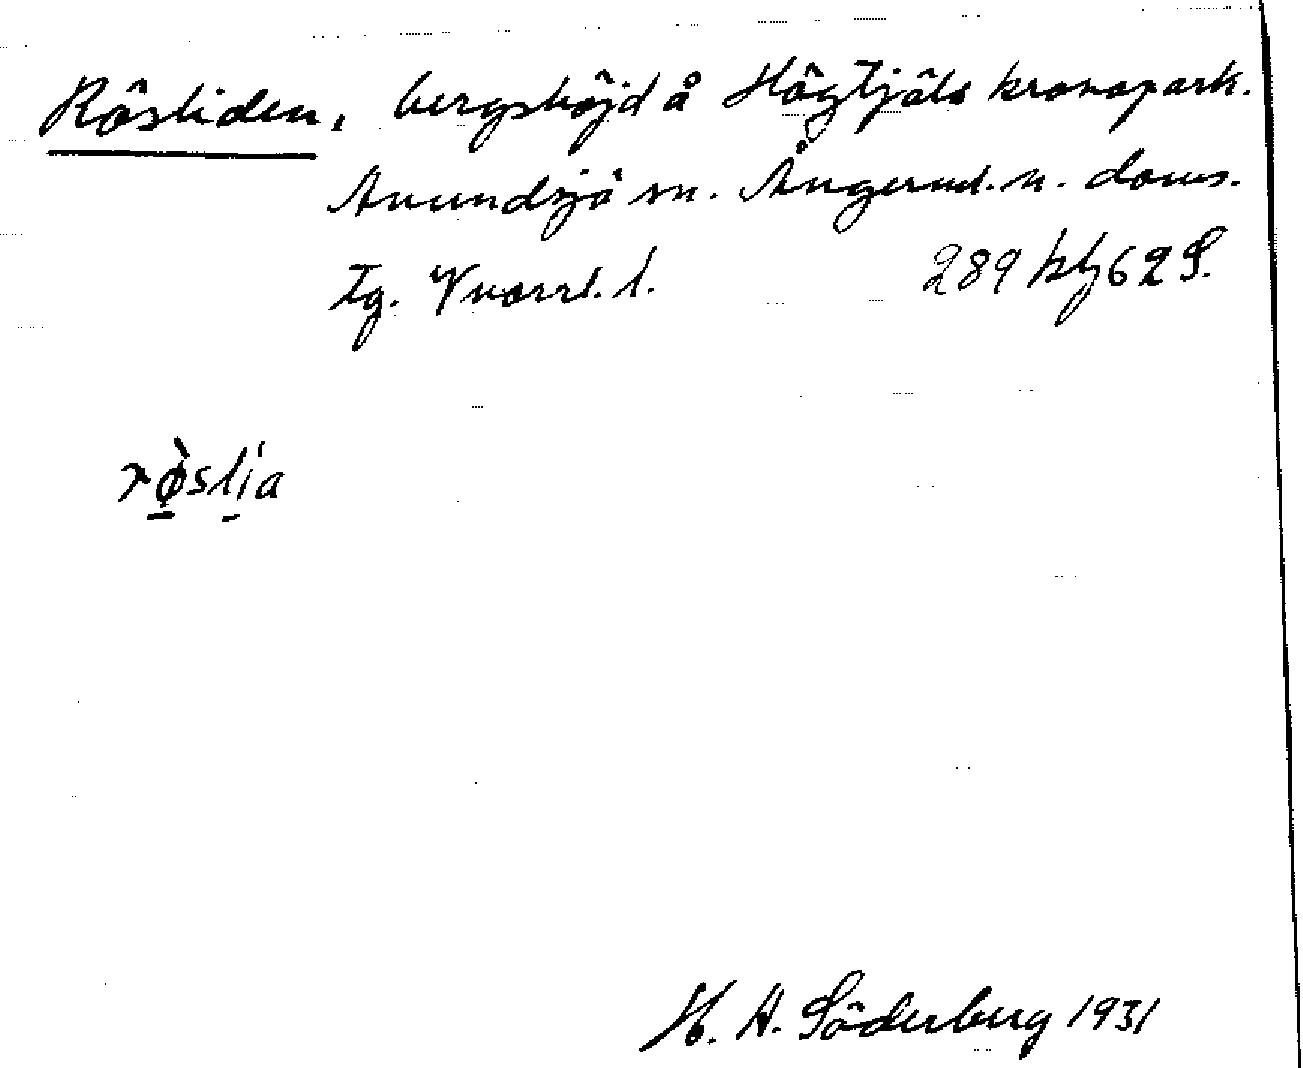 Rösliden, bergshöjd å Högtjäls kronopark.
Anundsjö sn. Ångerml. n. doms.
Tg. Vnorrl. l. 289 kbf 62 S.
rø̀slia
H. A. Söderberg 1931